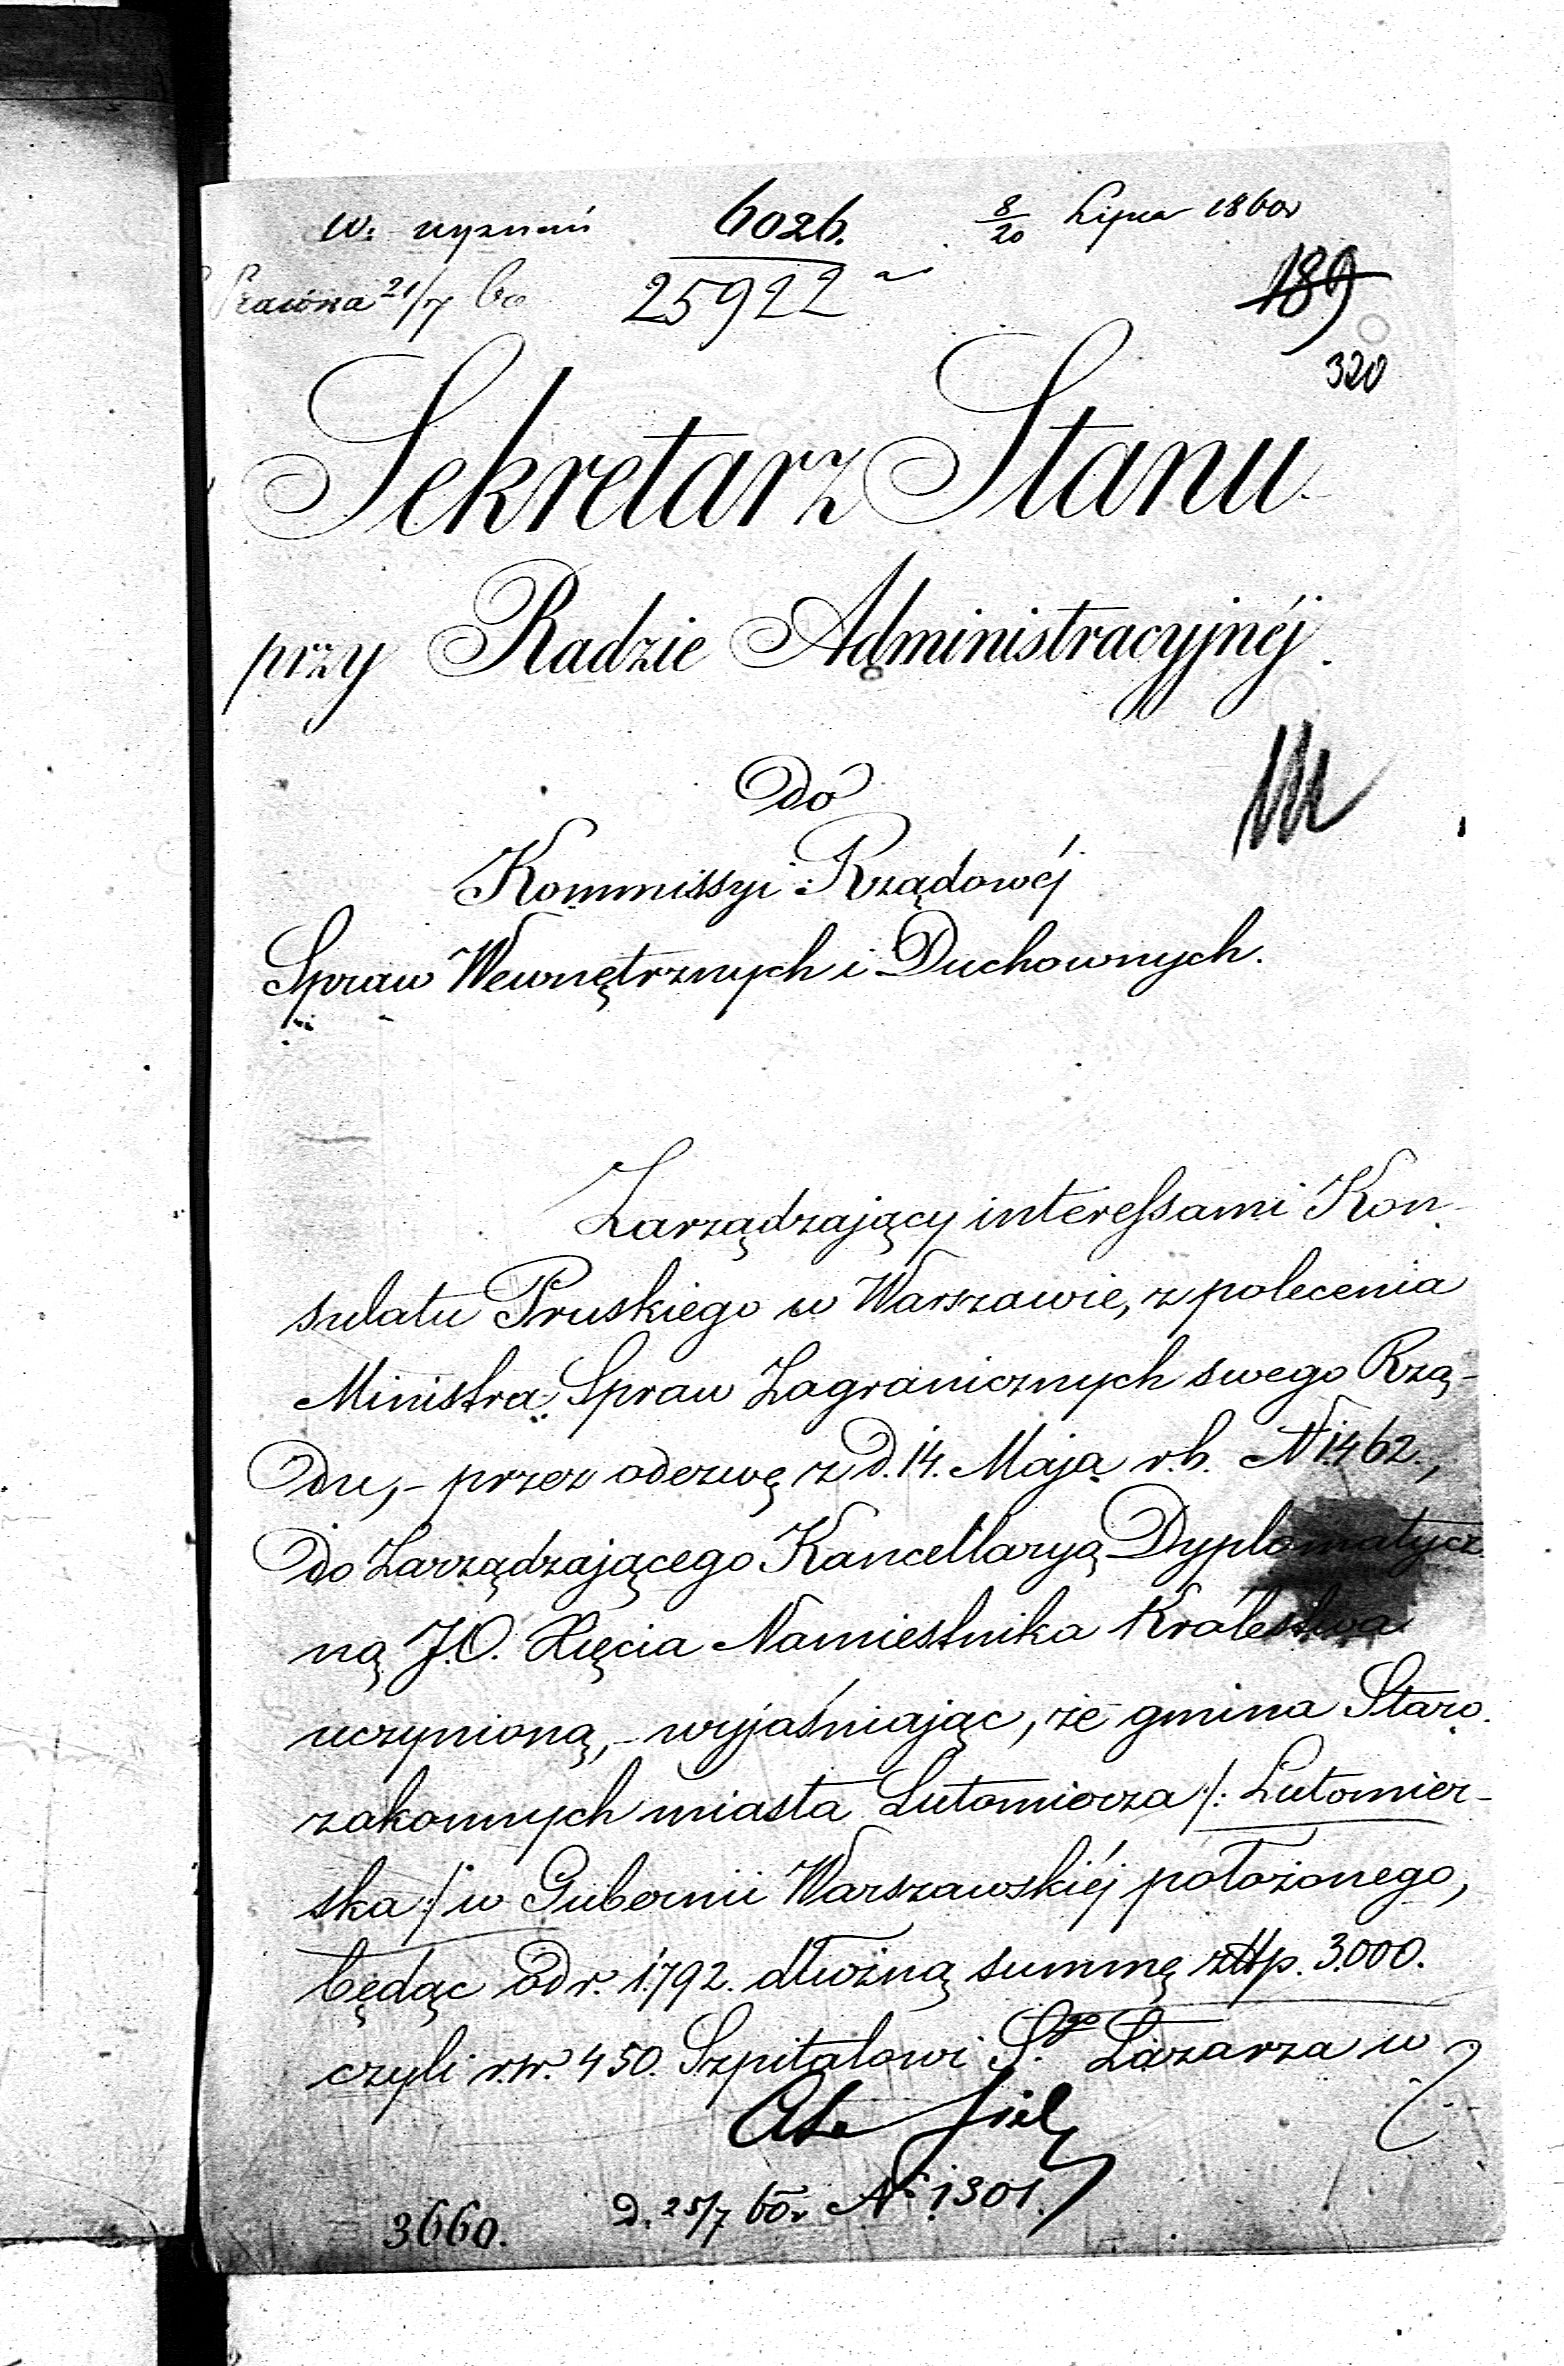 W. wyznań 6026. 8/20 Lipca 1860r
Prawna 21/7 60 25922
189
320
Sekretarz Stanu
przy Radzie Administracyjnéj.
Do
Kommissyi Rządowéj
Spraw Wewnętrznych i Duchownych.
Zarządzający interessami Kon-
sulatu Pruskiego w Warszawie, z polecenia
Ministra Spraw Zagranicznych swego Rzą-
du, - przez odezwę z d. 14. Maja r.b. N 1462.,
do Zarządzającego Kancellaryą Dyplomatycz-
ną J.O. Xięcia Namiestnika Królestwa
uczynioną, - wyjaśniając, że gmina Staro-
zakonnych miasta Lutomiercza /: Lutomier-
ska :/ w Gubernii Warszawskiéj położonego,
będąc od r. 1792. dłużną summę złtp. 3.000.
czyli r.sr. 450. Szpitalowi S.go Łazarza w
d. 25/7 60r N 1301.
3660.